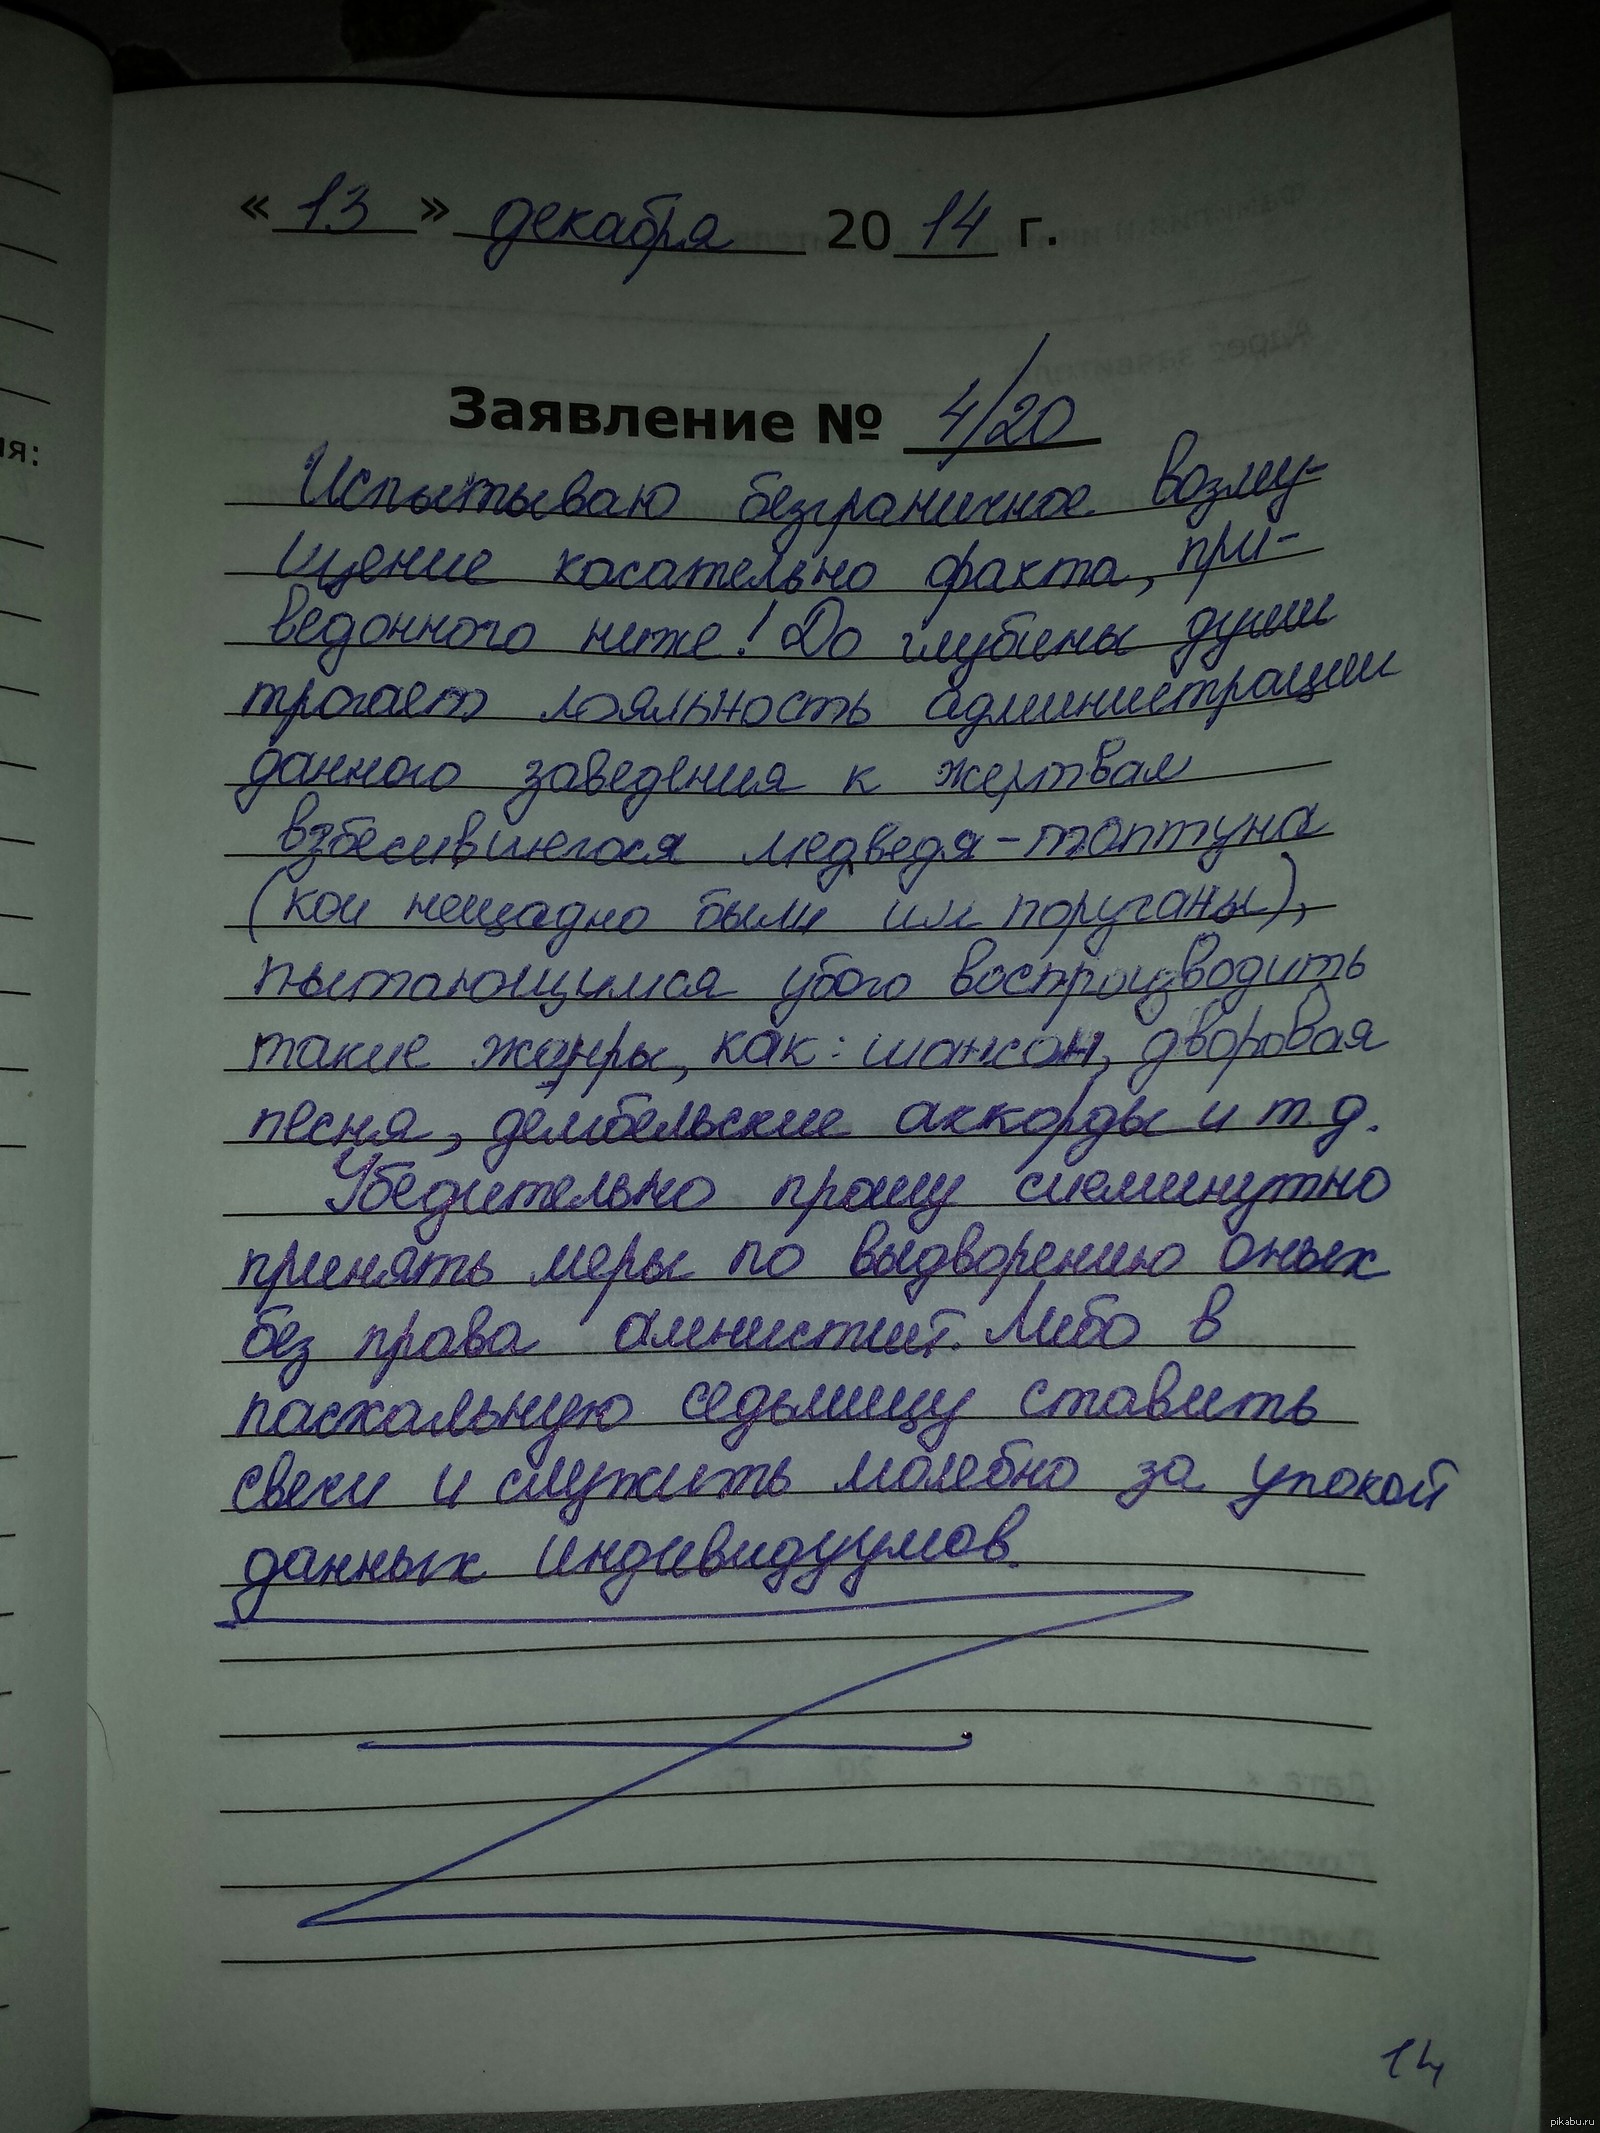 « 13 » декабря 2014 г.
Заявление № 4/20
Испытываю безграничное возму-
щение касательно факта, при-
веденного ниже! До глубины души
трогает лояльность администрации
данного заведения к жертвам
взбесившегося медведя-топтуна
(кои нещадно были им поруганы),
пытающимся убого воспроизводить
такие жанры, как: шансон, дворовая
песня, дембельские аккорды и т.д.
Убедительно прошу сиеминутно
принять меры по выдворению оных
без права амнистии. Либо в
пасхальную седьмицу ставить
свечи и служить молебно за упокой
данных индивидуумов.
14
ия:
pikabu.ru